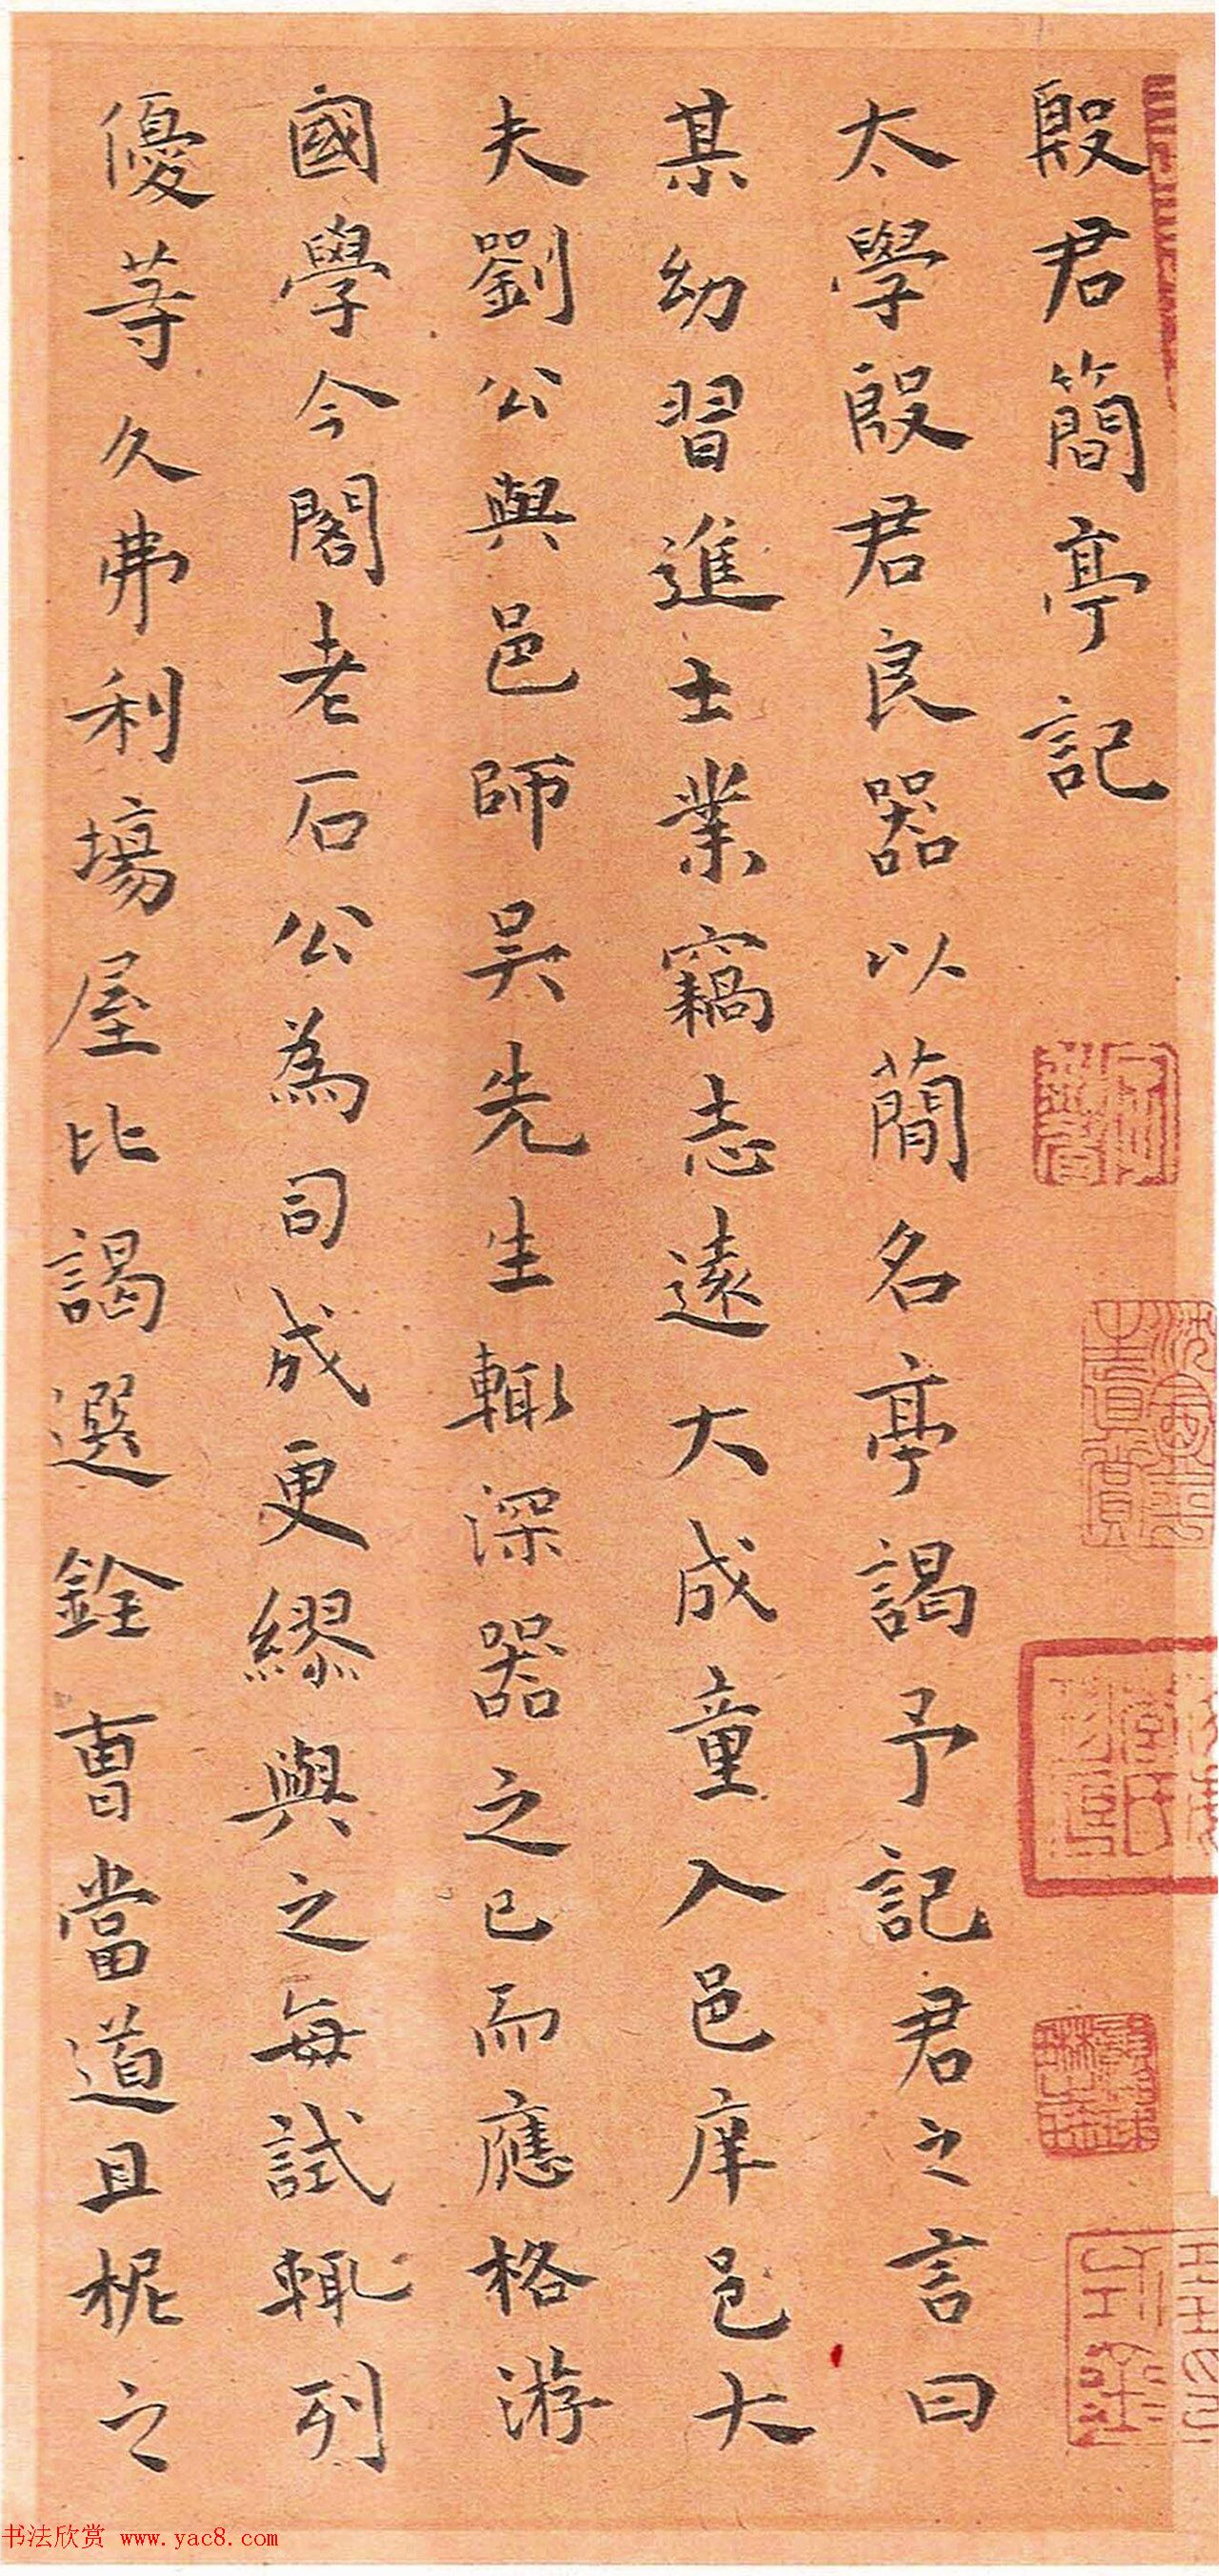 殷君簡亭記
太學殷君良器以蕑名亭謁予記君之言曰
某幼習進士業竊志遠大成童入邑庠邑大
夫劉公與邑師吴先生輙深器之已而應格游
國學今閣老石公為司成更繆與之每試輙列
優等久弗利場屋比謁選銓曺當道且柅之
书法欣赏 www.yac8.com